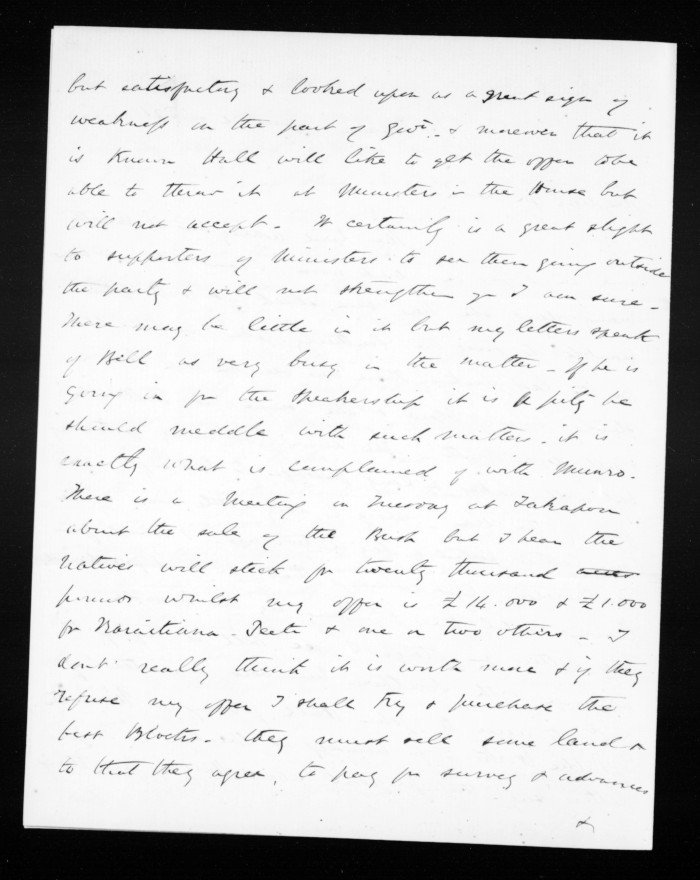 but satisfactory & looked upon as a great sign of
weakness on the part of Govt. & moreover that it
is known Hall will like to get the offer to be
able to throw it at Ministers in the House but
will not accept - It certainly is a great slight
to supporters of Ministers to see them going outside
the party & will not strengthen yr I am sure -
There may be little in it but my letters speak
of Bill as very busy in the matter - If he is
going in for the Speakership it is a pity he
should meddle with such matters - it is
exactly what is complained of with Munro.
There is a Meeting on Tuesday at Takapau
about the sale of the Bush but I hear the
natives will stick for twenty thousand
pounds whilst my offer is £14.000 & £1.000
for Karaitiana - Peeti & one or two others - I
don't really think it is worth more & if they
refuse my offer I shall try & purchase the
best Blocks - they must sell some land &
to that they agree, to pay for survey & advances
&